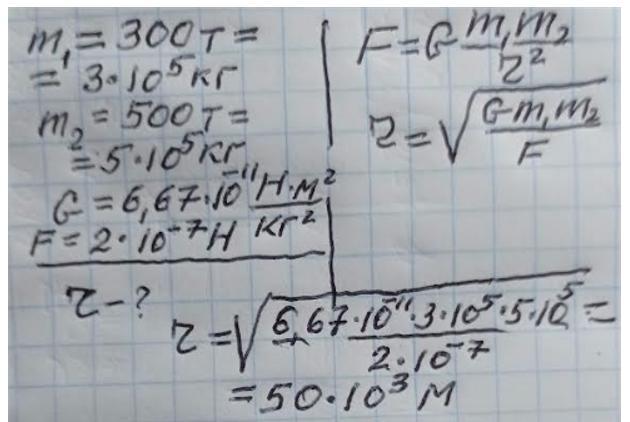 m₁ = 300т =
= 3·10⁵кг
m₂ = 500т =
= 5·10⁵кг
G = 6,67·10⁻¹¹ Н·м²/кг²
F = 2·10⁻⁷Н
r - ?
F = G m₁m₂/r²
r = √(Gm₁m₂/F)
r = √(6,67·10⁻¹¹·3·10⁵·5·10⁵/2·10⁻⁷) =
= 50·10³ м